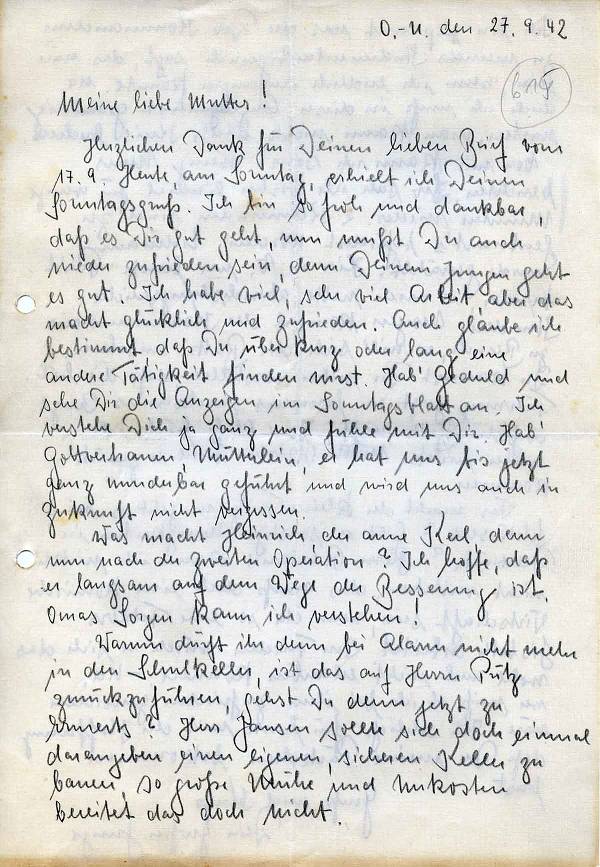 O.-U. den 27.9.42
Meine liebe Mutter!
Herzlichen Dank für Deinen lieben Brief vom
17.9 Heute, am Sonntag, erhielt ich Deinen
Sonntagsgruß. Ich bin so froh und dankbar,
daß es Dir gut geht, nun mußt Du auch
wieder zufrieden sein, denn Deinem Jungen geht
es gut. Ich habe viel, sehr viel Arbeit aber das
macht glücklich und zufrieden. Auch glaube ich
bestimmt daß Du über kurz oder lang eine
andere Tätigkeit finden wirst. Hab' Geduld und
sehe Dir die Anzeigen im Sonntagsblatt an. Ich
verstehe Dich ja ganz und fühle mit Dir. Hab'
Gottvertrauen, Mütterlein, er hat uns bis jetzt
ganz wunderbar geführt und wird uns auch in
Zukunft nicht vergessen.
Was macht Heinrich der arme Kerl, denn
nun nach der zweiten Operation? Ich hoffe, daß
er langsam auf dem Wege der Besserung ist.
Omas Sorgen kann ich verstehen!
Warum dürft ihr denn bei Alarm nicht mehr
in den Schulkeller, ist das auf Herrn Pütz
zurückzuführen, gehst Du denn jetzt zu
Ewerts? Herr Jansen sollte sich doch einmal
darangeben einen eigenen, sicheren Keller zu
bauen, so große Mühe und Unkosten
bereitet das doch nicht.